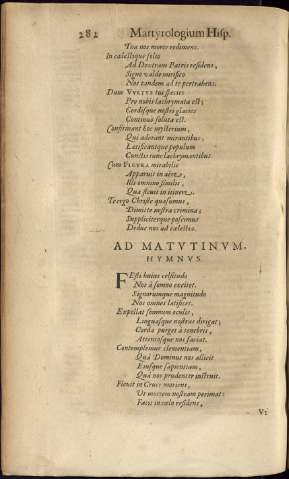 282 Martyrologium Hisp.
Tua nos morte redimens.
In cælestique solio
Ad Dextram Patris residens,
Signo valde mirifico
Nos tandem ad te pertrahens.
Dum VVLTVS tuæ species
Pro nobis lachrymata est;
Cordisque nostri glacies
Continuò soluta est.
Confirmant hoc mysterium,
Qui aderant mirantibus.
Lætificantque populum
Conspectum lachrymantibus.
Cum FIGVRA mirabilis
Apparuit in aëre,
Illi omnino similis,
Quæ fecit in itinere.
Te ergo Christe quæsumus,
Dimitte nostra crimina;
Suppliciterque poscimus
Deduc nos ad cælestia.
AD MATVTINVM.
HYMNVS.
FEsti huius celsitudo
Nos à somno excitet.
Signorumque magnitudo
Nos omnes latificet.
Expellat somnum oculis,
Linguasque nostras dirigat;
Corda purget à tenebris,
Attentosque nos faciat.
Contemplemur clementiam,
Quâ Dominus nos allicit
Eiusque sapientiam,
Quâ nos prudenter instruit.
Flevit in Cruce moriens,
Ut mortem nostram perimat:
Favit in cælo residens,
Vt